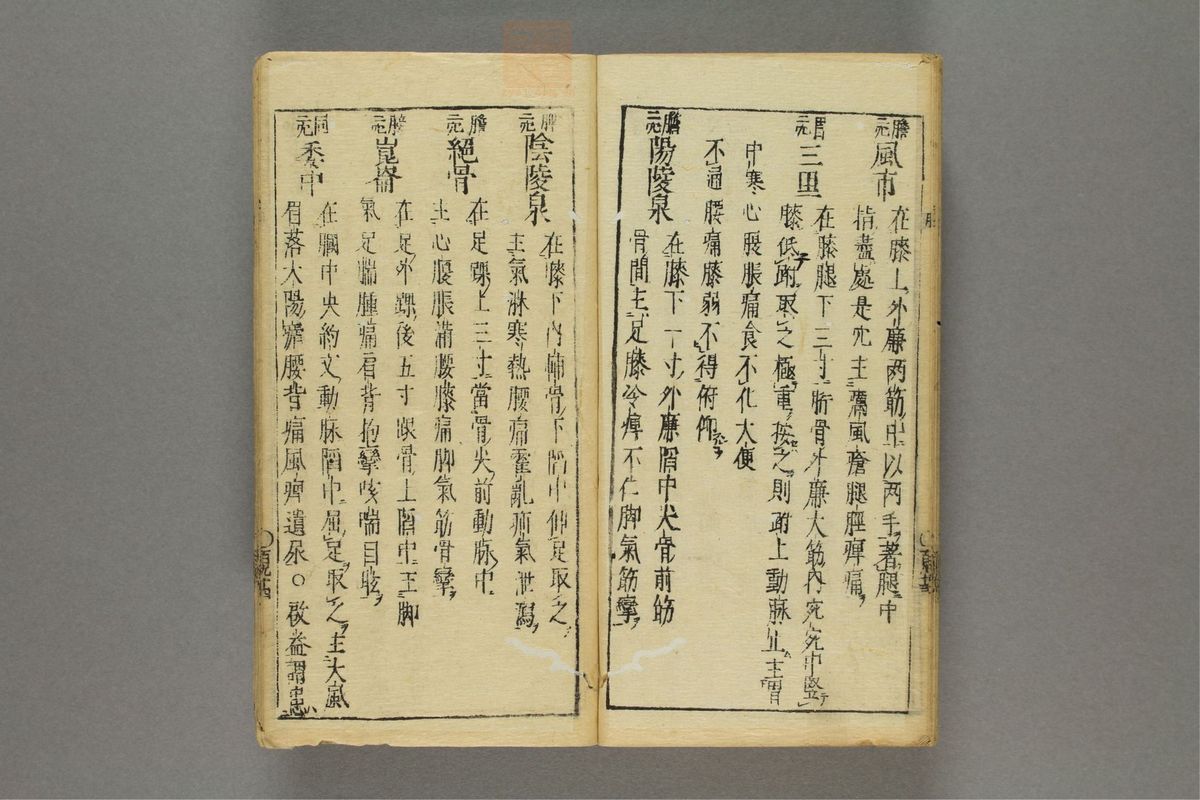 膽 二元 風市
在膝上外廉兩筋中以两手著腿中
指盡處是穴主癘風瘡腿脛痺痛
胃 二元 三里
在膝腿下三寸䯒骨外廉大筋內宛宛中竪
膝低跗取之極重按之則跗上動脉止主胃
中寒心腹脹痛食不化大便
不通腰痛膝弱不得俯仰
膽 二元 陽陵泉
在膝下一寸外廉陷中尖骨前筋
骨間主足膝冷痺不仁脚氣筋攣
脾 二元 陰陵泉
在膝下内輔骨下陷中伸足取之
主氣淋寒熱腰痛霍亂疝氣泄瀉
膽 二元 絕骨
在足踝上三寸當骨尖前動脉中
主心腹脹滿腰膝痛脚氣筋骨攣
膀 二元 崑崙
在足外踝後五寸跟骨上陷中主脚
氣足腨腫痛肩背拘攣咳喘目眩
同 二元 委中
在膕中央約文動脉陷中屈足取之主大風
眉落太陽瘧腰背痛風痺遺尿〇啟益謂患